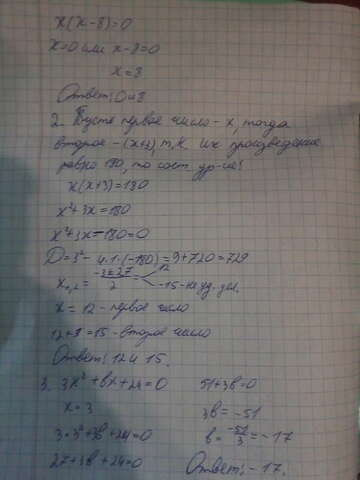 x(x-8)=0
x=0 или x-8=0
x=8
Ответ: 0 и 8
2. Пусть первое число - x, тогда
второе - (x+3) т.к. их произведение
равно 180, то сост. ур-ие:
x(x+3)=180
x²+3x=180
x²+3x-180=0
D=3²-4·1·(-180)=9+720=729
x₁,₂= (-3±27)/2 = 12
-15-не уд. усл.
x=12-первое число
12+3=15-второе число
Ответ: 12 и 15.
3. 3x²+bx+24=0
x=3
3·3²+3b+24=0
27+3b+24=0
51+3b=0
3b=-51
b=-51/3=-17
Ответ: -17.